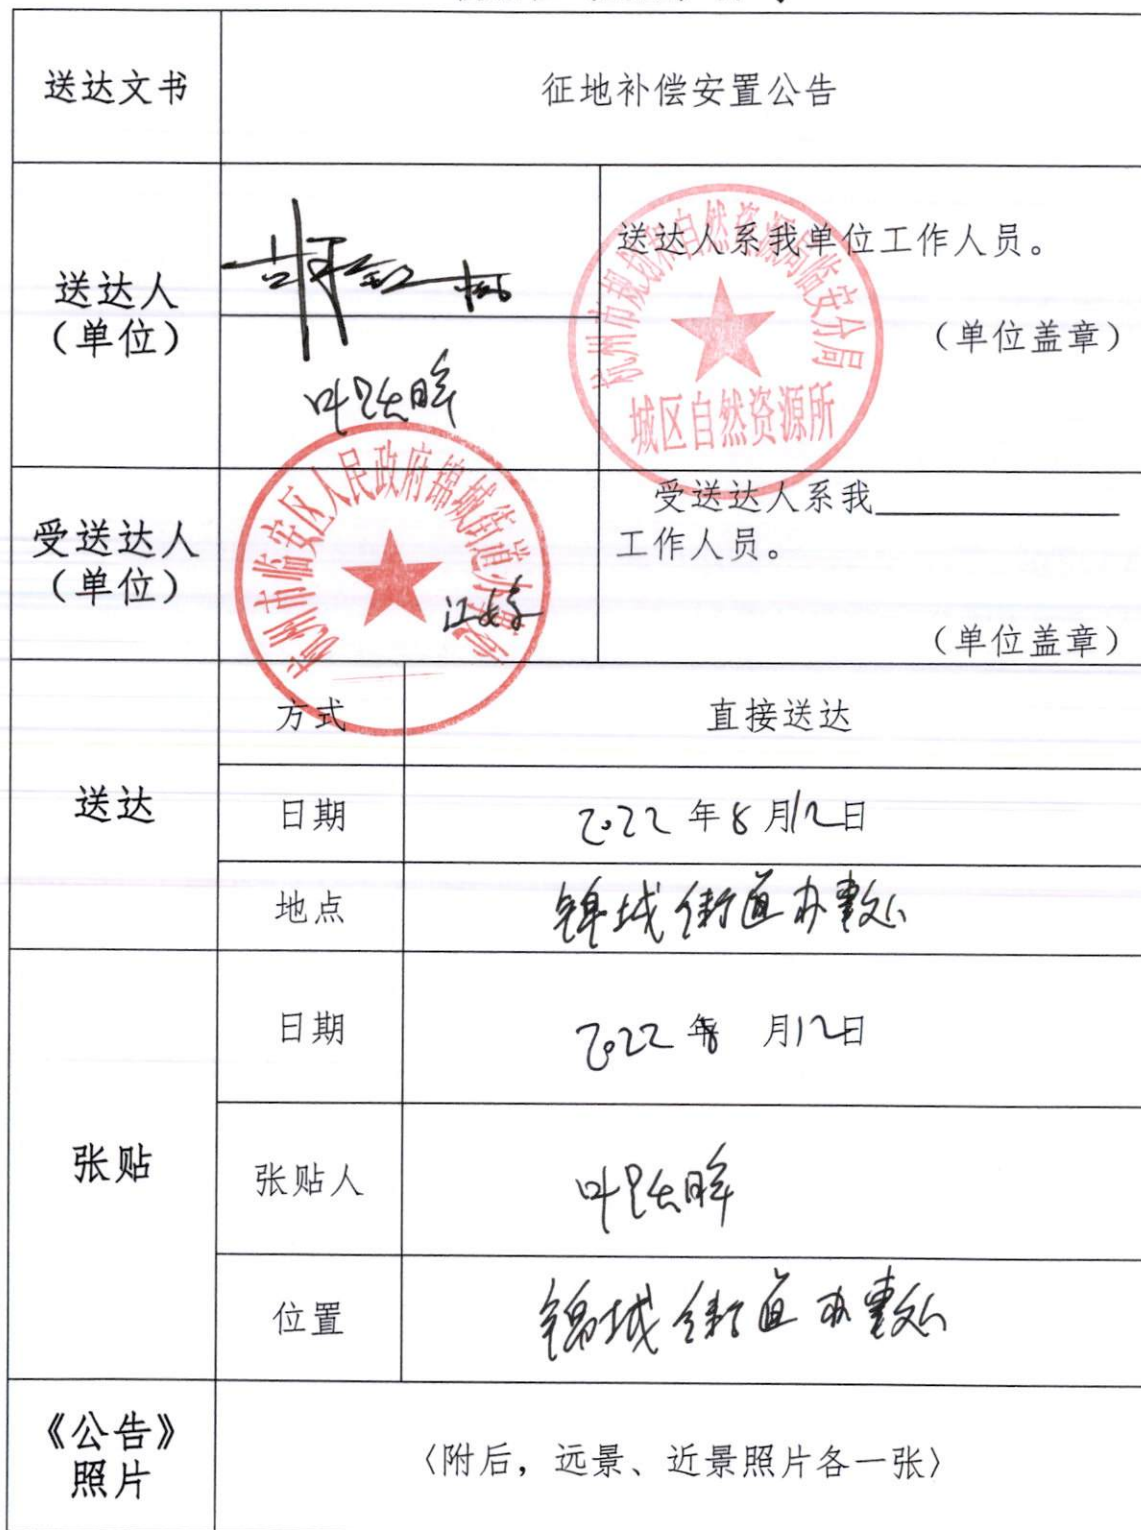 送达文书
征地补偿安置公告
送达人
（单位）
送达人系我单位工作人员。
（单位盖章）
杭州市规划和自然资源局临安分局
城区自然资源所
叶跃晖
受送达人
（单位）
杭州市临安区人民政府锦城街道办事处
受送达人系我
工作人员。
（单位盖章）
送达
方式
直接送达
日期
2022年8月12日
地点
锦城街道办事处
张贴
日期
2022年8月12日
张贴人
叶跃晖
位置
锦城街道办事处
《公告》
照片
〈附后，远景、近景照片各一张〉